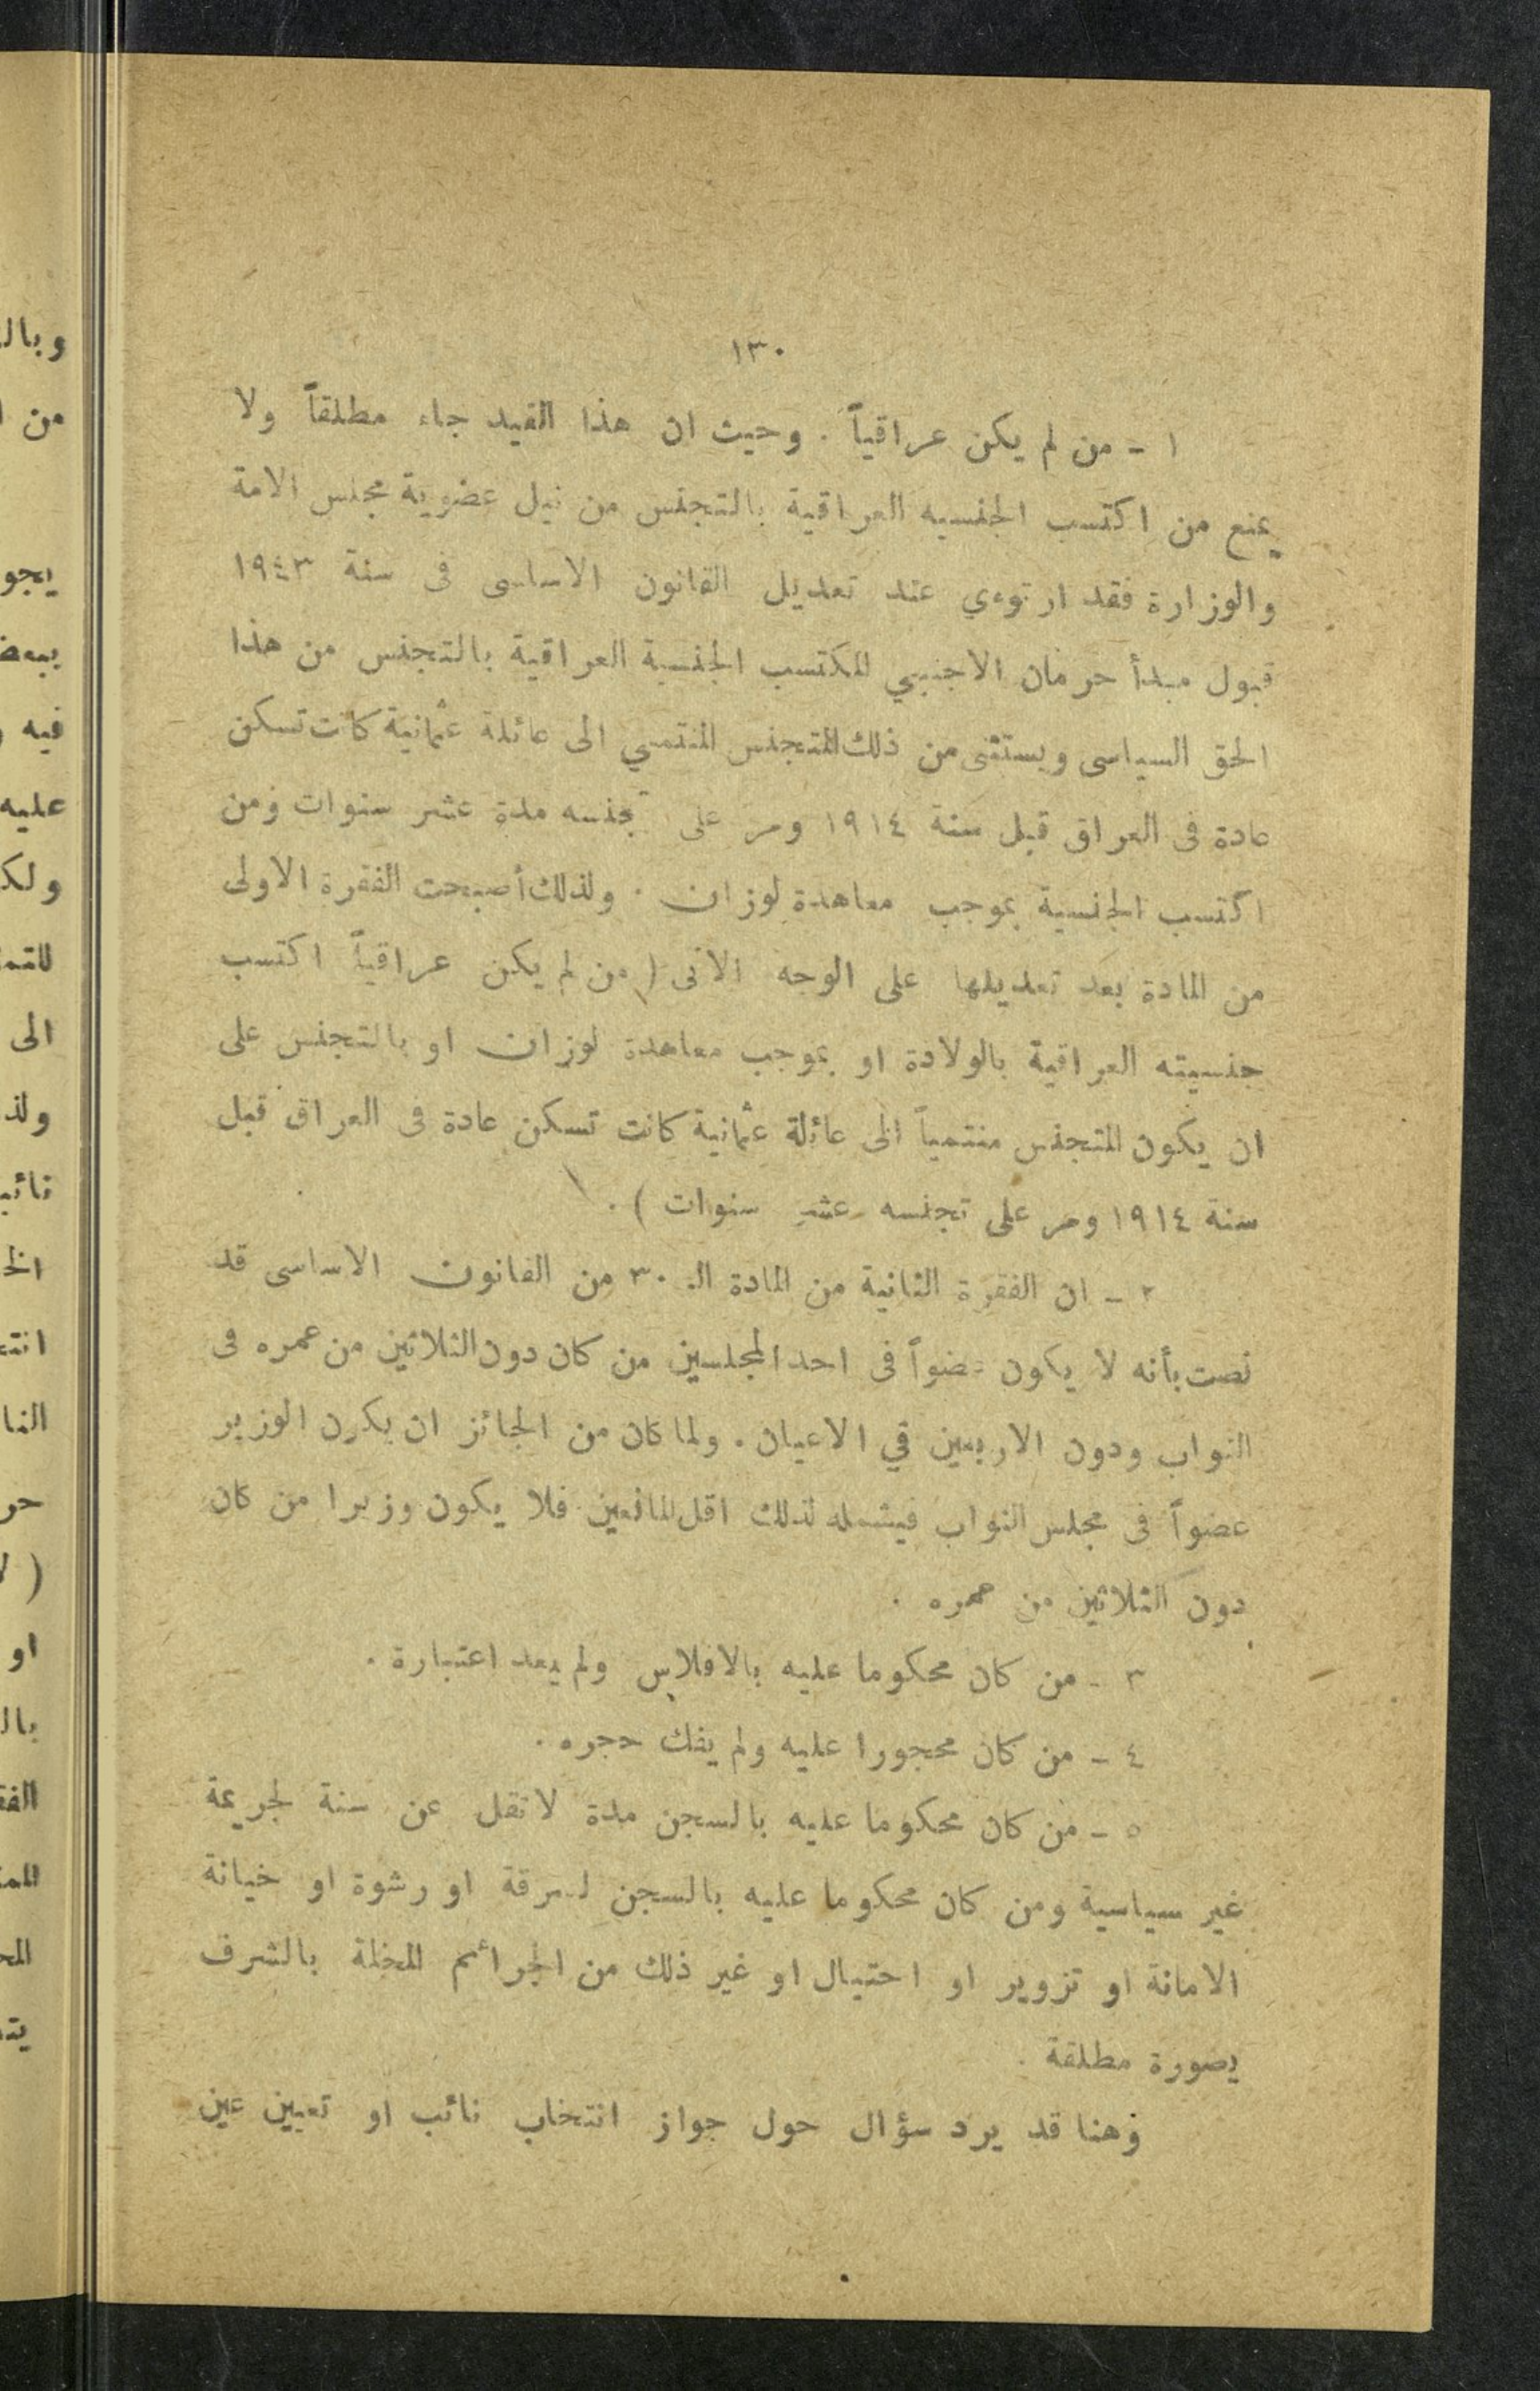 ١٣٠
١ - من لم يكن عراقياً . وحيث ان هذا القيد جاء مطلقاً ولا
يمنع من اكتسب الجنسيه العراقية بالتجنس من نيل عضوية مجلس الامة
والوزارة فقد ارتوءي عند تعديل القانون الاساسى فى سنة ١٩٤٣
قبول مبدأ حرمان الاجنبي المكتسب الجنسية العراقية بالتجنس من هذا
الحق السياسى ويستثنى من ذلك المتجنس المنتمي الى عائلة عثمانية كانت تسكن
عادة فى العراق قبل سنة ١٩١٤ ومر على تجنسه مدة عشر سنوات ومن
اكتسب الجنسية بموجب معاهدة لوزان . ولذلك أصبحت الفقرة الاولى
من المادة بعد تعديلها على الوجه الاتى ( من لم يكن عراقياً اكتسب
جنسيته العراقية بالولادة او بموجب معاهدة لوزان او بالتجنس على
ان يكون المتجنس منتمياً الى عائلة عثمانية كانت تسكن عادة فى العراق قبل
سنة ١٩١٤ ومر على تجنسه عشر سنوات ) .
٢ - ان الفقرة الثانية من المادة الـ ٣٠ من القانون الاساسى قد
نصت بأنه لا يكون عضواً فى احد المجلسين من كان دون الثلاثين من عمره فى
النواب ودون الاربعين في الاعيان . ولما كان من الجائز ان يكون الوزير
عضواً فى مجلس النواب فيشمله لذلك اقل المانعين فلا يكون وزيرا من كان
دون الثلاثين من عمره .
٣ - من كان محكوما عليه بالافلاس ولم يعد اعتبارة .
٤ - من كان محجورا عليه ولم يفك حجره .
٥ - من كان محكوما عليه بالسجن مدة لا تقل عن سنة لجريمة
غير سياسية ومن كان محكوما عليه بالسجن لسرقة او رشوة او خيانة
الامانة او تزوير او احتيال او غير ذلك من الجرائم المخلة بالشرف
بصورة مطلقة .
وهنا قد يرد سؤال حول جواز انتخاب نائب او تعيين عين